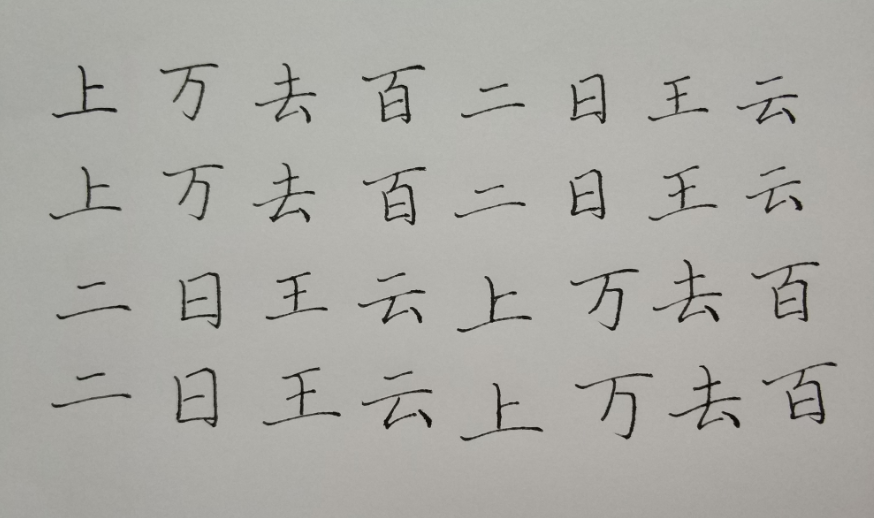 上万去百二日王云
上万去百二日王云
二日王云上万去百
二日王云上万去百